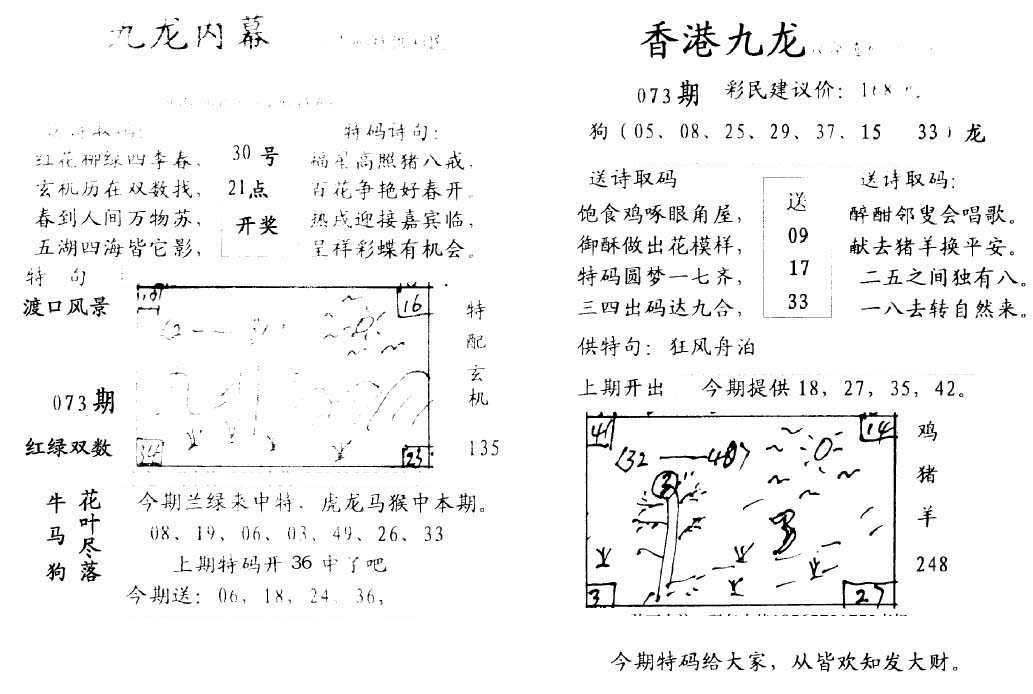 九龙内幕
30 号
21点
开奖
特码诗句：
红花柳绿四季春，
玄机历在双数找，
春到人间万物苏，
五湖四海皆它影，
福星高照猪八戒，
百花争艳好春开。
热戌迎接嘉宾临，
呈祥彩蝶有机会。
特 句：
渡口风景
073期
红绿双数
16
34
23
特配玄机
135
牛马狗
花叶尽落
今期兰绿来中特，虎龙马猴中本期。
08、19、06、03、49、26、33
上期特码开 36 中了吧
今期送：06，18，24、36，
香港九龙
073期 彩民建议价：168
狗（05、08、25、29、37、15 33）龙
送诗取码
饱食鸡啄眼角屋，
御酥做出花模样，
特码圆梦一七齐，
三四出码达九合，
送
09
17
33
送诗取码：
醉酣邻叟会唱歌。
献去猪羊换平安。
二五之间独有八。
一八去转自然来。
供特句：狂风舟泊
上期开出 今期提供 18，27，35，42。
41
14
32——48
3
27
鸡
猪
羊
248
今期特码给大家，从皆欢知发大财。